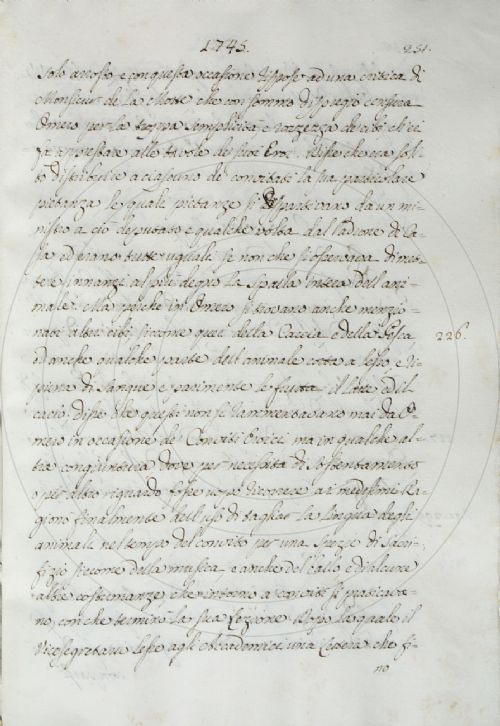 1745.
251.
Solo arrosto e con questa occasione rispose ad una critica di
Monsieur de la Motte che con sommo dispregio censura
Omero per la troppa semplicità e rozzezza de cibi ch'ei
fa apprestare alle tavole de suoi Eroi. Disse che era soli-
to distribuirsi a ciascuno de convitati la sua particolare
pietanza le quali pietanze si spartivano da un mi-
nistro a ciò deputato e qualche volta dal Padrone di Ca-
sa ed erano tutte uguali se non che si osservava di met-
tere innanzi al più degno la Spalla intera dell'ani-
male. Ma perche in Omero si trovano anche menzio-
nati altri cibi siccome quei della Caccia e della Pesca
226.
ed anche qualche parte dell'animale cotta a lesso, e ri-
piena di sangue, e parimente le frutta il latte ed il
cacio disse che questi non si rammentavano mai da O-
mero in occasione de Conviti Eroici ma in qualche al-
tra congiuntura dove per necessità di sostentamento
o per altro riguardo fosse uopo ricorrere ai medesimi. Ra-
gionò finalmente dell'uso di tagliar la lingua degli
animali nel tempo del convito per una spezie di Sacri-
fizio siccome dalla musica, e anche del ballo e d'alcune
altre costumanze che intorno a conviti si praticava-
no, con che terminò la sua Lezione. Dopo la quale il
Vicesegretario lesse agli Accademici una Lettera che fi-
no